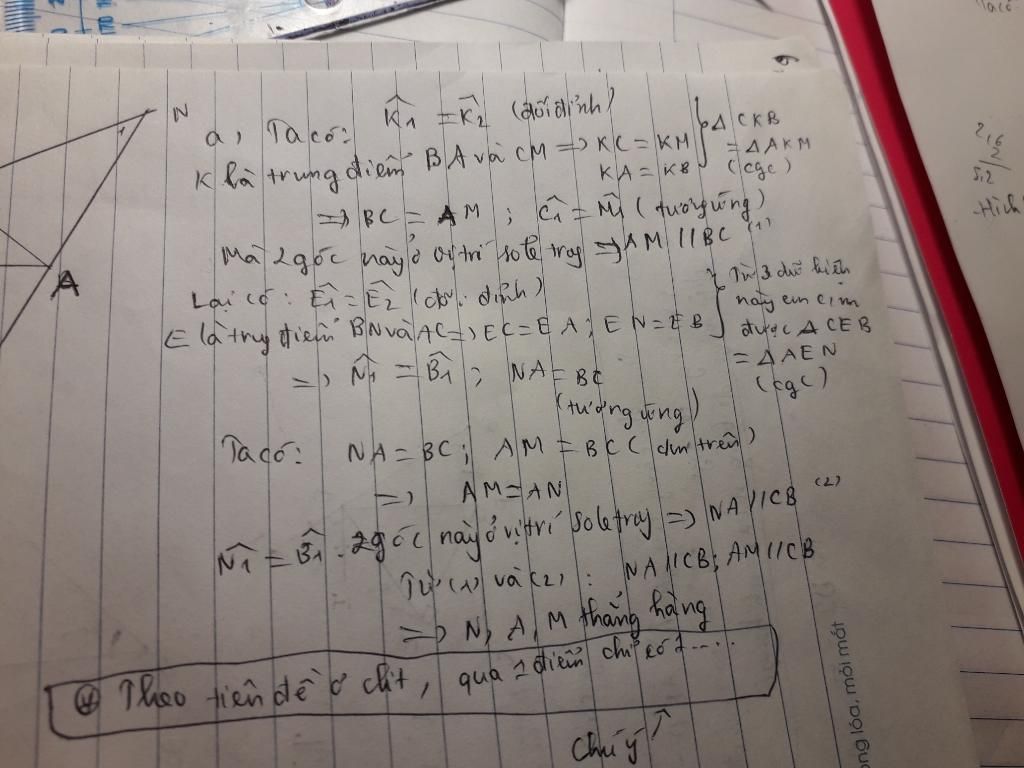 N
A
a, Ta có: K̂1 = K̂2 (đối đỉnh)
K là trung điểm BA và CM => KC = KM
KA = KB
△CKB
= △AKM
(cgc)
=> BC = AM ; Ĉ1 = M̂1 (tương ứng)
Mà 2 góc này ở vị trí so le trog => AM // BC (1)
Lại có: Ê1 = Ê2 (đối đỉnh)
E là trug điểm BN và AC => EC = EA ; EN = EB
Từ 3 dữ kiện
này em c/m
được △CEB
= △AEN
(cgc)
=> N̂1 = B̂1 ; NA = BC
(tương ứng)
Ta có: NA = BC ; AM = BC (cm trên)
=> AM = AN
N̂1 = B̂1. 2 góc này ở vị trí so le trog => NA // CB (2)
Từ (1) và (2) : NA // CB ; AM // CB
=> N, A, M thẳng hàng
Theo tiên đề ơ clit, qua 1 điểm chỉ có 1....
Chú ý
ng lóa, mỏi mắt